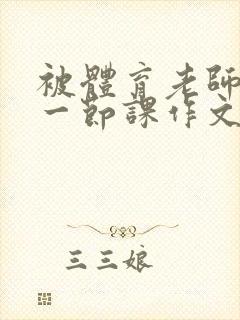 被體育老師
一節課作文
三三娘